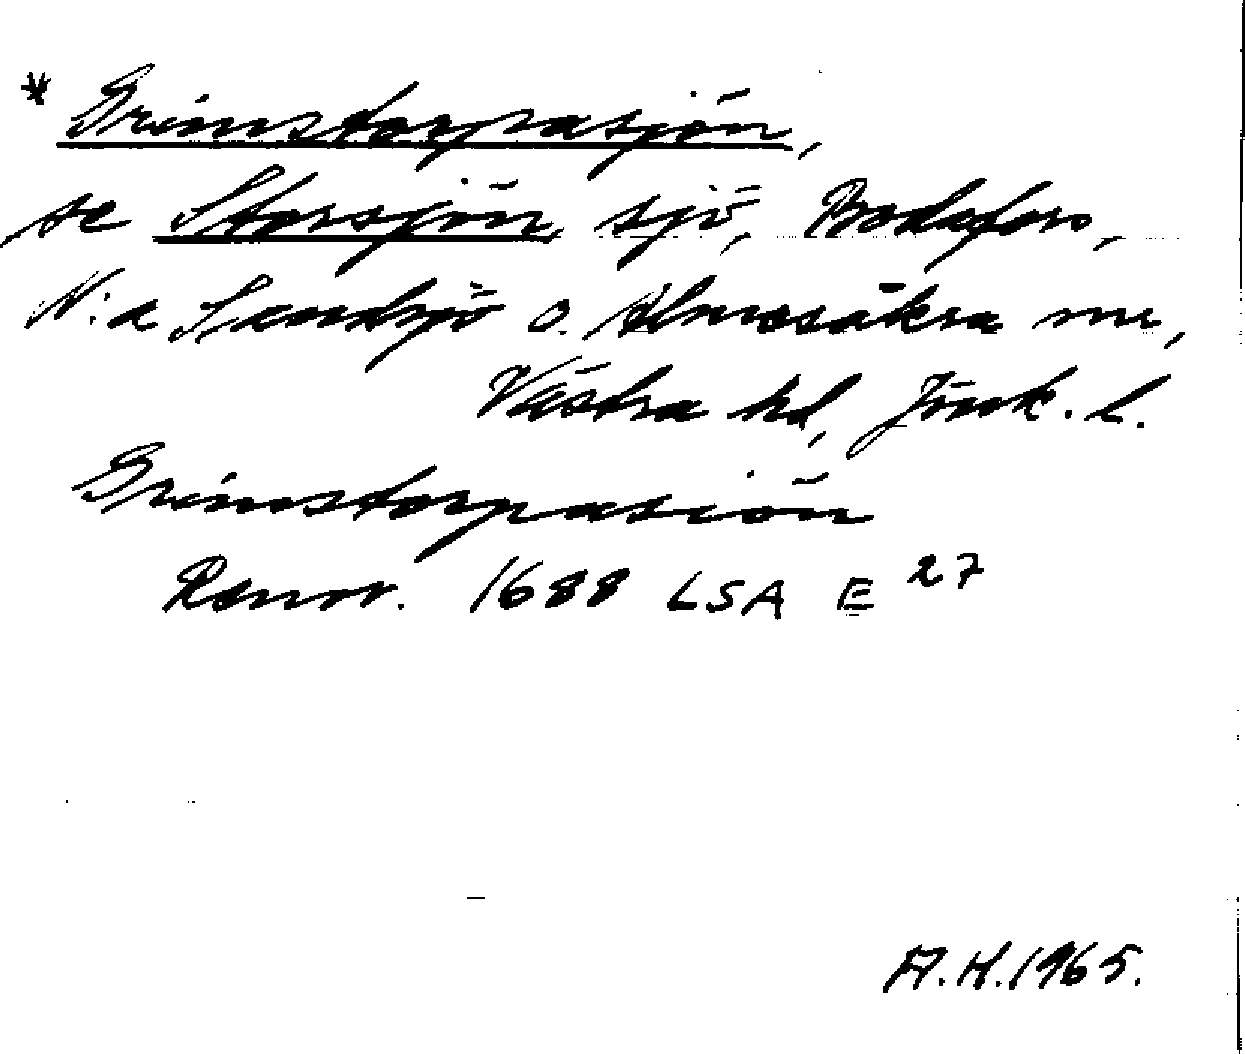 * Grimstorpasjön,
se Storsjön, sjö, Bodafors,
N:a Sandsjö o. Almesåkra snr,
Västra hd, Jönk. l.
Grimstorpasiön
Renov. 1688 LSA E 27
A.H. 1965.